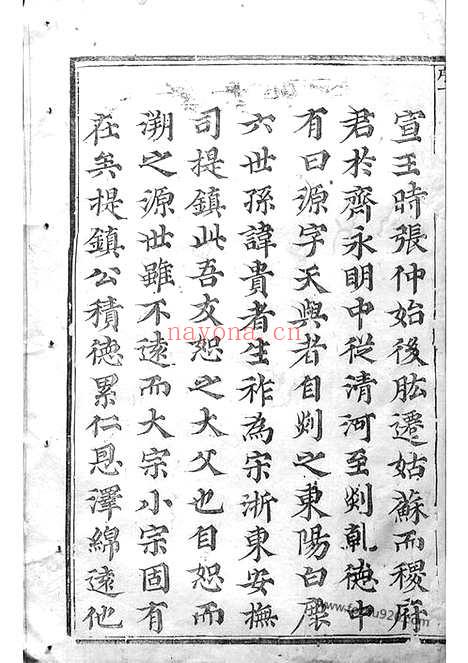 宣王時張仲始後肱遷姑蘇而稷府
君於齊永明中從清河至剡乹徳中
有曰源字天與者自剡之東陽白塵
六世孫諱貴者生祚為宋浙東安撫
司提鎮此吾友恕之大父也自恕而
溯之源世雖不遠而大宗小宗固有
在矣提鎮公積德累仁恩澤綿遠他
nayona.cn